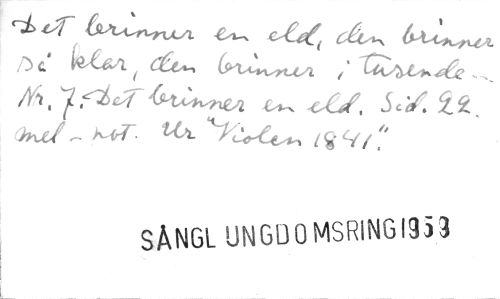 Det brinner en eld, den brinner
så klar, den brinner i tusende –
Nr. 7. Det brinner en eld. Sid. 22.
mel – not. Ur "Violen 1841".
SÅNGL UNGDOMSRING1959